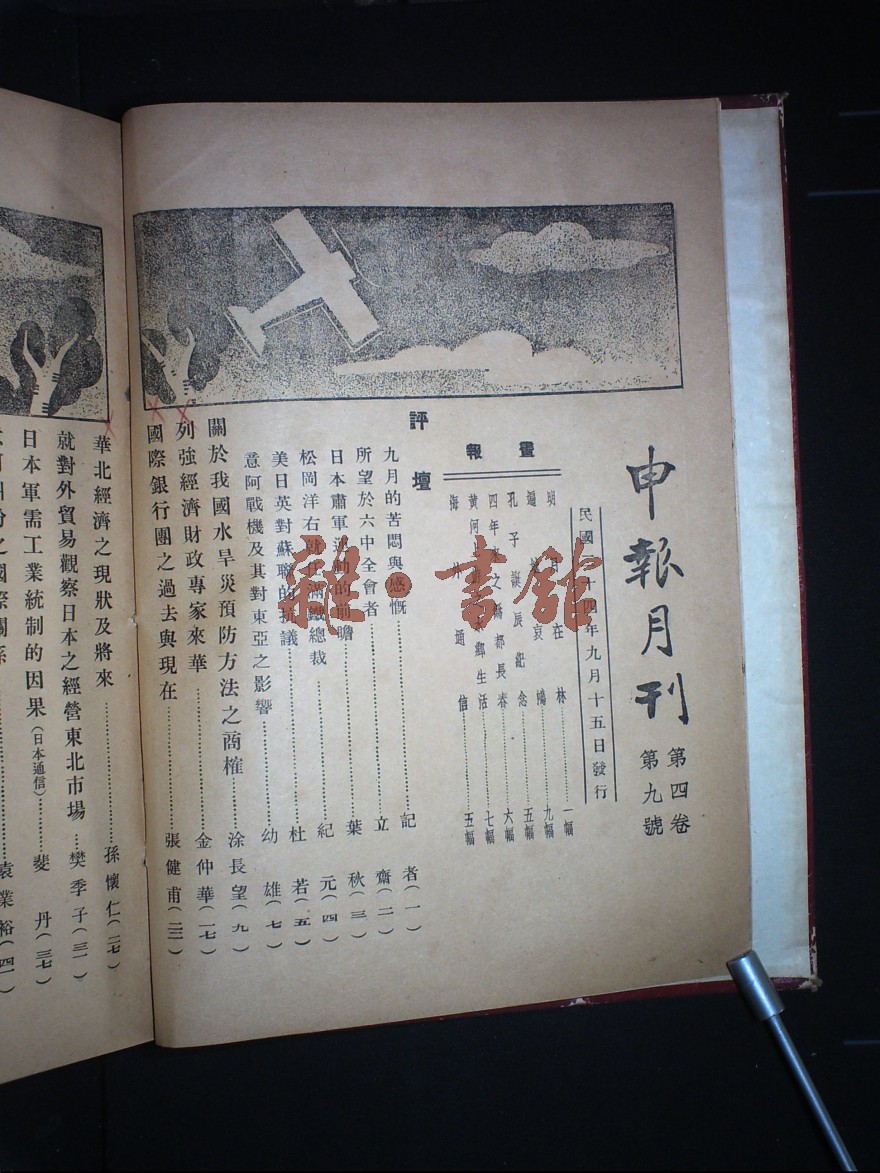 申報月刊
第四卷
第九號
民國二十四年九月十五日發行
畫報
明月在林……一幅
遍地哀鴻……九幅
孔子誕辰紀念……五幅
四年來之偽都長春……六幅
黃河水鄉生活……七幅
海外通信……五幅
評壇
九月的苦悶與感慨……記者(一)
所望於六中全會者……立齋(二)
日本肅軍運動的前瞻……葉秋(三)
松岡洋右就任滿鐵總裁……紀元(四)
美日英對蘇聯的抗議……杜若(五)
意阿戰機及其對東亞之影響……幼雄(七)
關於我國水旱災預防方法之商榷……涂長望(九)
列強經濟財政專家來華……金仲華(一七)
國際銀行團之過去與現在……張健甫(二三)
華北經濟之現狀及將來……孫懷仁(二七)
就對外貿易觀察日本之經營東北市場……樊季子(三一)
日本軍需工業統制的因果(日本通信)……斐丹(三七)
糾紛之國際關係……袁業裕(四一)
雜·書館